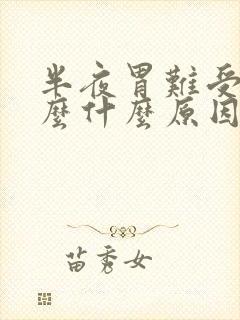 半夜胃難受
麼什麼原因
苗秀女